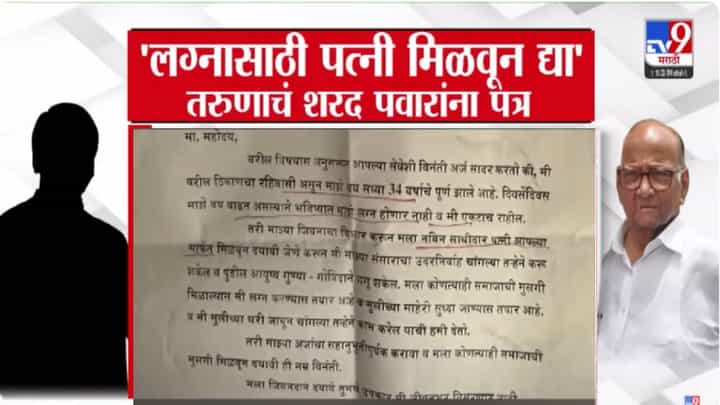 'लग्नासाठी पत्नी मिळवून द्या'
तरुणाचं शरद पवारांना पत्र
TV9
मराठी
मा. महोदय,
वरील विषयास अनुसरून आपल्या सेवेशी विनंती अर्ज सादर करतो की, मी
वरील ठिकाणचा रहिवासी असुन माझे वय सध्या 34 वर्षाचे पुर्ण झाले आहे. दिवसेंदिवस
माझे वय वाढत असल्याने भविष्यात माझे लग्न होणार नाही व मी एकटाच राहील.
तरी माझ्या जिवनाचा विचार करून मला नविन साथीदार पत्नी आपल्या
मार्फत मिळवून दयावी जेणे करून मी माझ्या संसाराचा उदरनिर्वाह चांगल्या तऱ्हेने करू
शकेल व पुढील आयुष्य गुण्या - गोविंदाने जगू शकेल. मला कोणत्याही समाजाची मुलगी
मिळाल्यास मी लग्न करण्यास तयार आहे व मुलीच्या माहेरी सुध्दा जाण्यास तयार आहे.
व मी मुलीच्या घरी जावून चांगल्या तऱ्हेने काम करेल याची हमी देतो.
तरी माझ्या अर्जाचा सहानुभूतीपूर्वक करावा व मला कोणत्याही समाजाची
मुलगी मिळवून दयावी ही नम्र विनंती.
मला जिवनदान दयावे
TV9